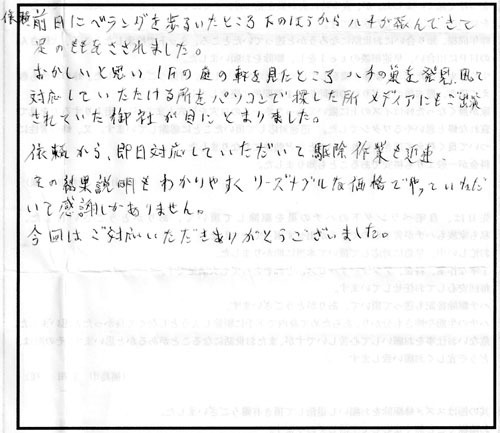 依頼前日にベランダを歩るいたところ下のほうからハチが飛んできて
足のももをさされました。
おかしいと思い1Fの庭の軒を見たところハチの巣を発見。急いで
対応していただける所をパソコンで探した所メディアにもご出演
されていた御社が目にとまりました。
依頼から、即日対応していただいて駆除作業も迅速。
その結果説明もわかりやすくリーズナブルな価格でやっていただ
いて感謝しかありません。
今回はご対応いただきありがとうございました。